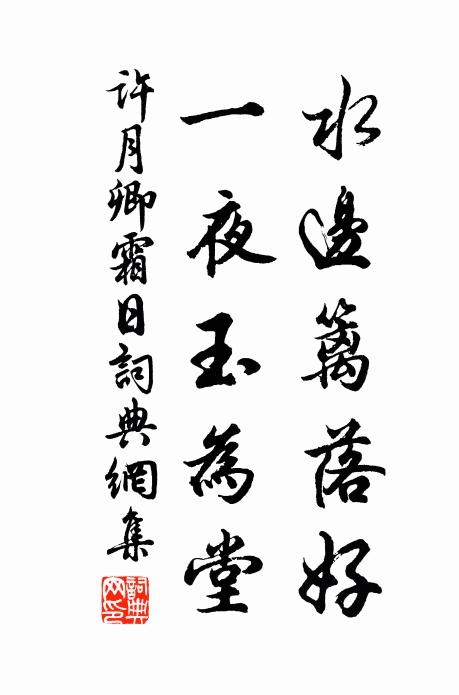 水邊籬落好
一夜玉為堂
許月卿霜日詞典網集
詞典網印